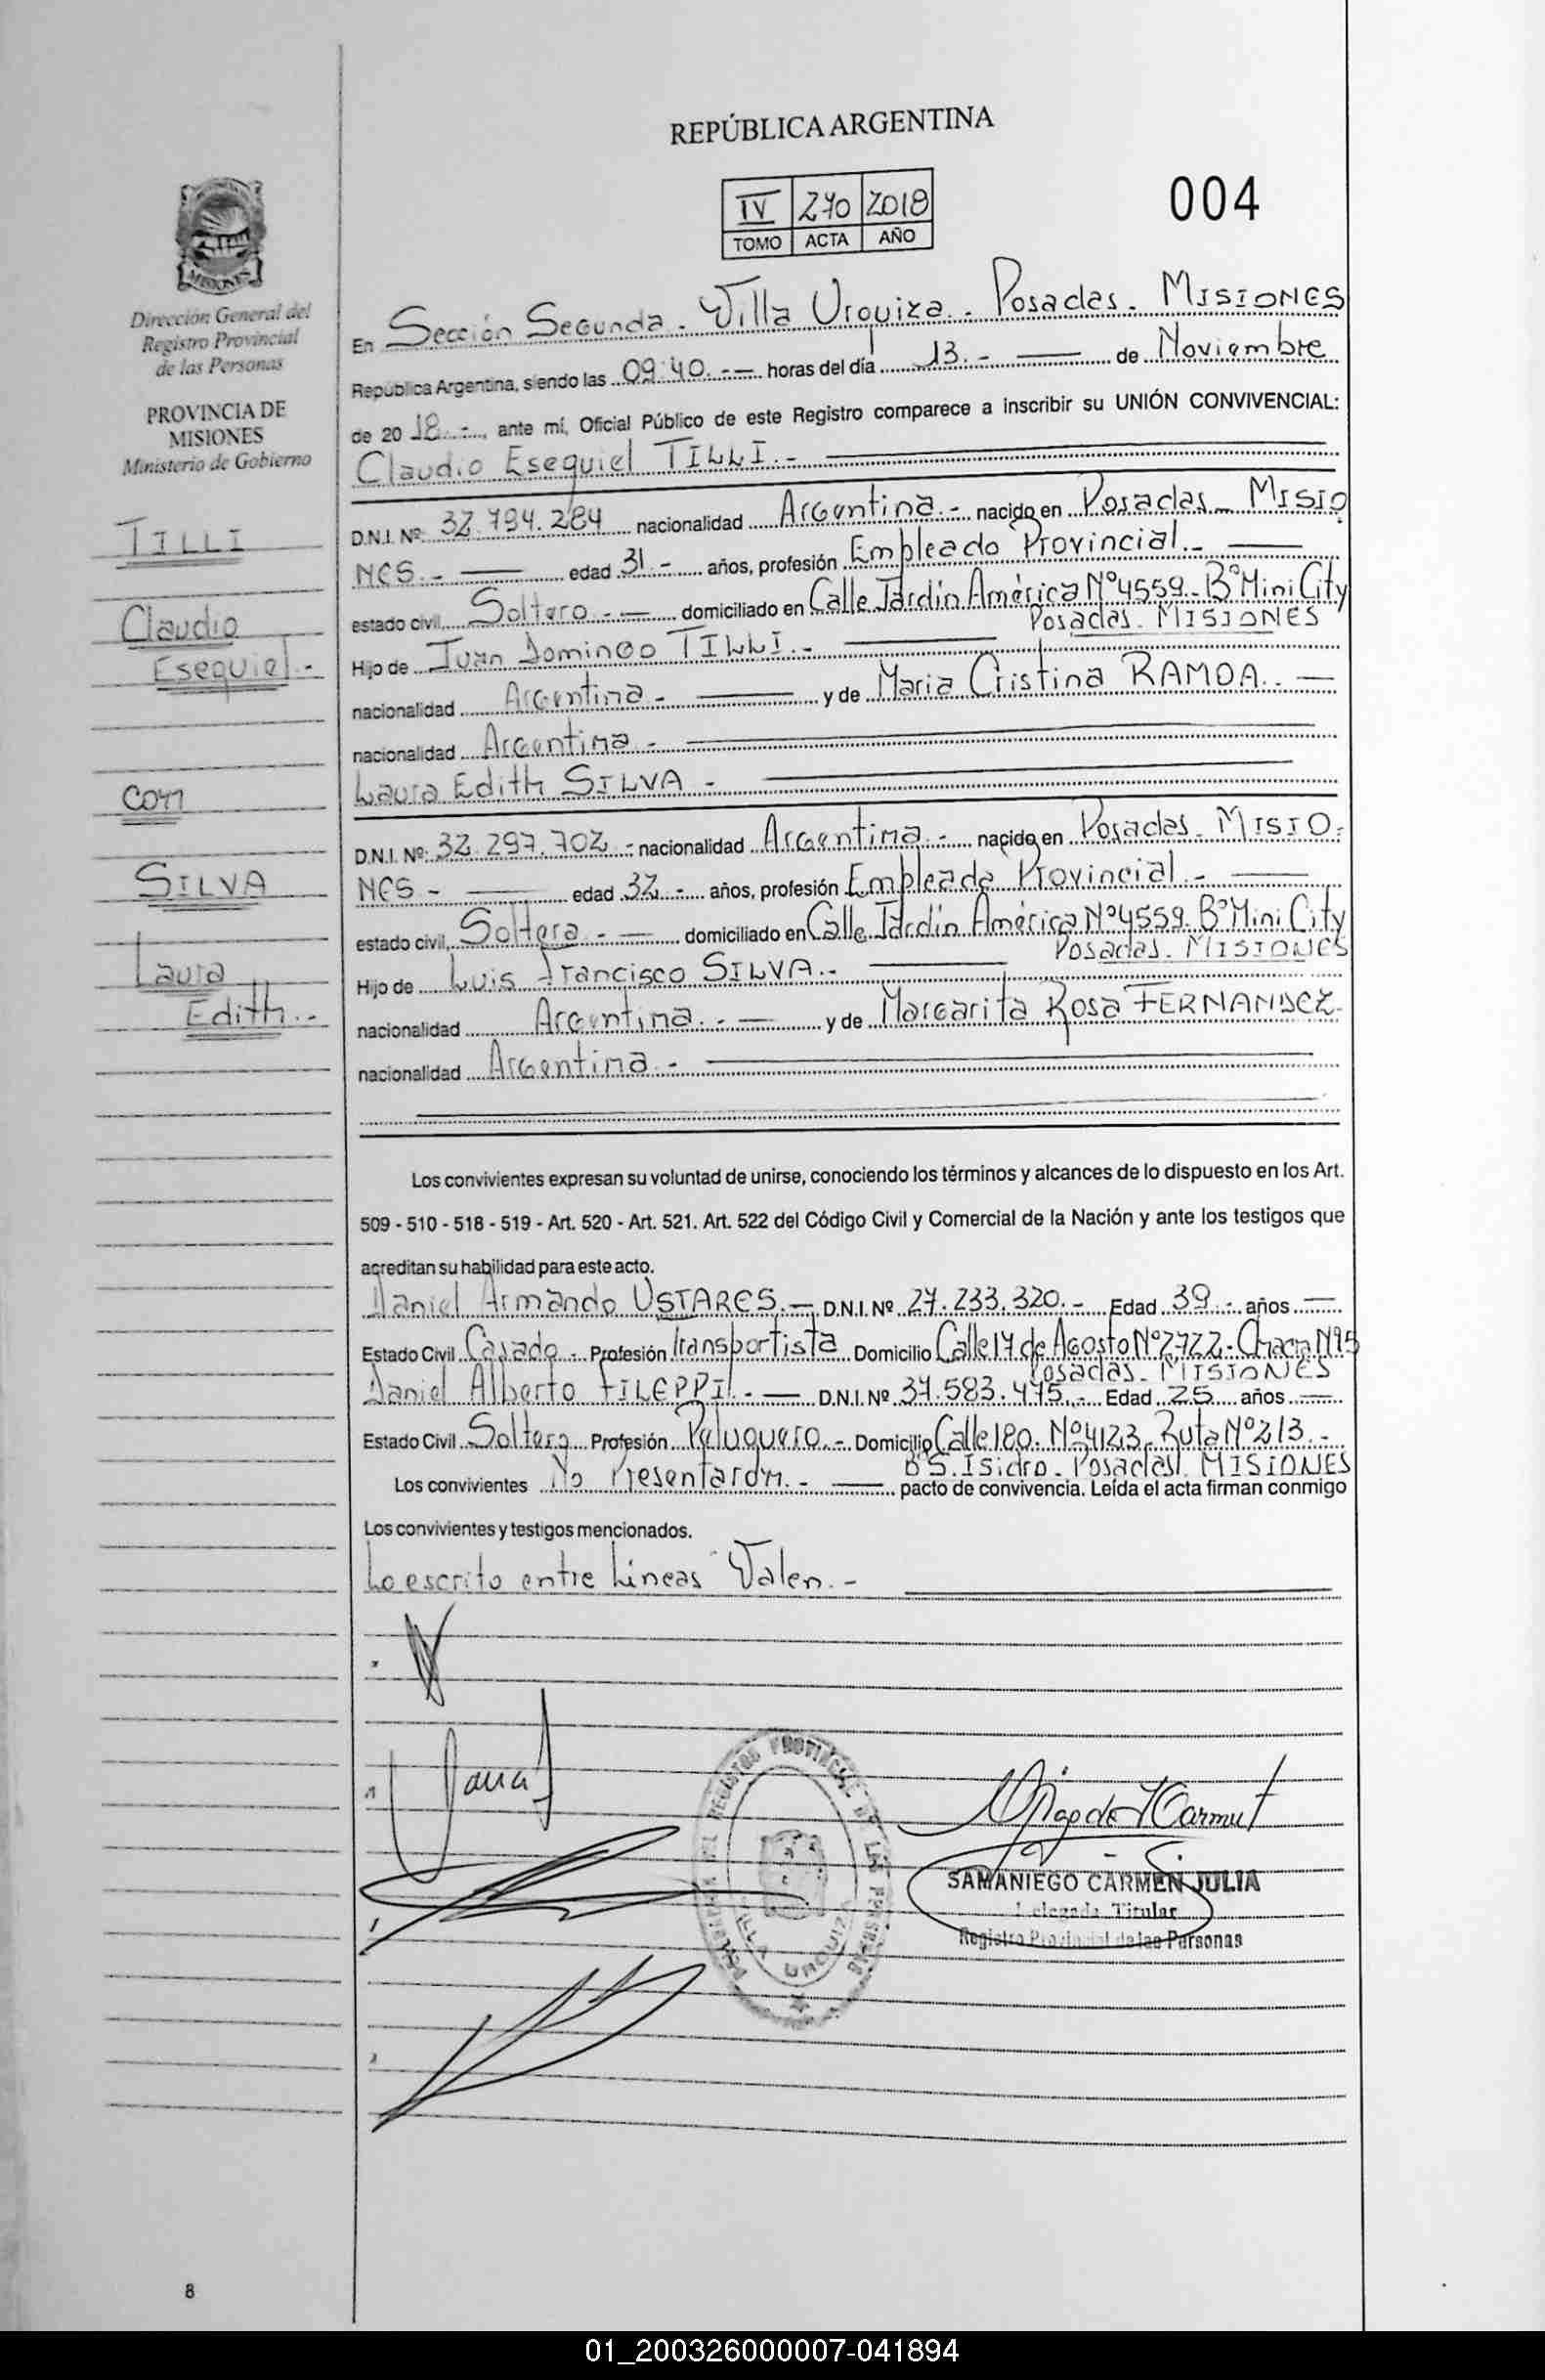 REPÚBLICA ARGENTINA
IV 270 2018
TOMO ACTA AÑO
004
MISIONES
Dirección General del
Registro Provincial
de las Personas
PROVINCIA DE
MISIONES
Ministerio de Gobierno
TILLI
Claudio
Esequiel.-
con
SILVA
Laura
Edith.-
En Sección Segunda - Villa Urquiza - Posadas - MISIONES
República Argentina, siendo las 09:40.-— horas del día 13.- — de Noviembre
de 2018.-, ante mí, Oficial Público de este Registro comparece a inscribir su UNIÓN CONVIVENCIAL:
Claudio Esequiel TILLI.-
D.N.I. Nº: 32.794.284 nacionalidad Argentina.- nacido en Posadas - MISIO
NES.- — edad 31.- años, profesión Empleado Provincial.- —
estado civil Soltero.-— domiciliado en Calle Jardín América Nº4559-Bº Mini City
Posadas - MISIONES
Hijo de Juan Domingo TILLI.-
nacionalidad Argentina.- — y de Maria Cristina RAMOA.-
nacionalidad Argentina.-
Laura Edith SILVA.-
D.N.I. Nº: 32.297.702.- nacionalidad Argentina.- nacido en Posadas - MISIO-
NES.- — edad 32.- años, profesión Empleada Provincial.- —
estado civil Soltera.-— domiciliado en Calle Jardín América Nº4559-Bº Mini City
Posadas - MISIONES
Hijo de Luis Francisco SILVA.-
nacionalidad Argentina.-— y de Margarita Rosa FERNANDEZ-
nacionalidad Argentina.-
Los convivientes expresan su voluntad de unirse, conociendo los términos y alcances de lo dispuesto en los Art.
509 - 510 - 518 - 519 - Art. 520 - Art. 521. Art. 522 del Código Civil y Comercial de la Nación y ante los testigos que
acreditan su habilidad para este acto.
Daniel Armando USTARES.- D.N.I. Nº 27.233.320.- Edad 39.- años —
Estado Civil Casado.- Profesión Transportista Domicilio Calle 17 de Agosto Nº2722-Chacra Nº95
Posadas - MISIONES
Daniel Alberto FILEPPI.-— D.N.I. Nº 37.583.475.- Edad 25 años —
Estado Civil Soltero Profesión Peluquero.- Domicilio Calle 180 - Nº4123 - Ruta Nº213.-
Bº S. Isidro - Posadas - MISIONES
Los convivientes No Presentaron.- — pacto de convivencia. Leída el acta firman conmigo
Los convivientes y testigos mencionados.
Lo escrito entre Lineas Valen.-
SAMANIEGO CARMEN JULIA
Delegada Titular
Registro Provincial de las Personas
DELEGACION DEL REGISTRO PROVINCIAL DE LAS PERSONAS
VILLA URQUIZA
8
01_200326000007-041894